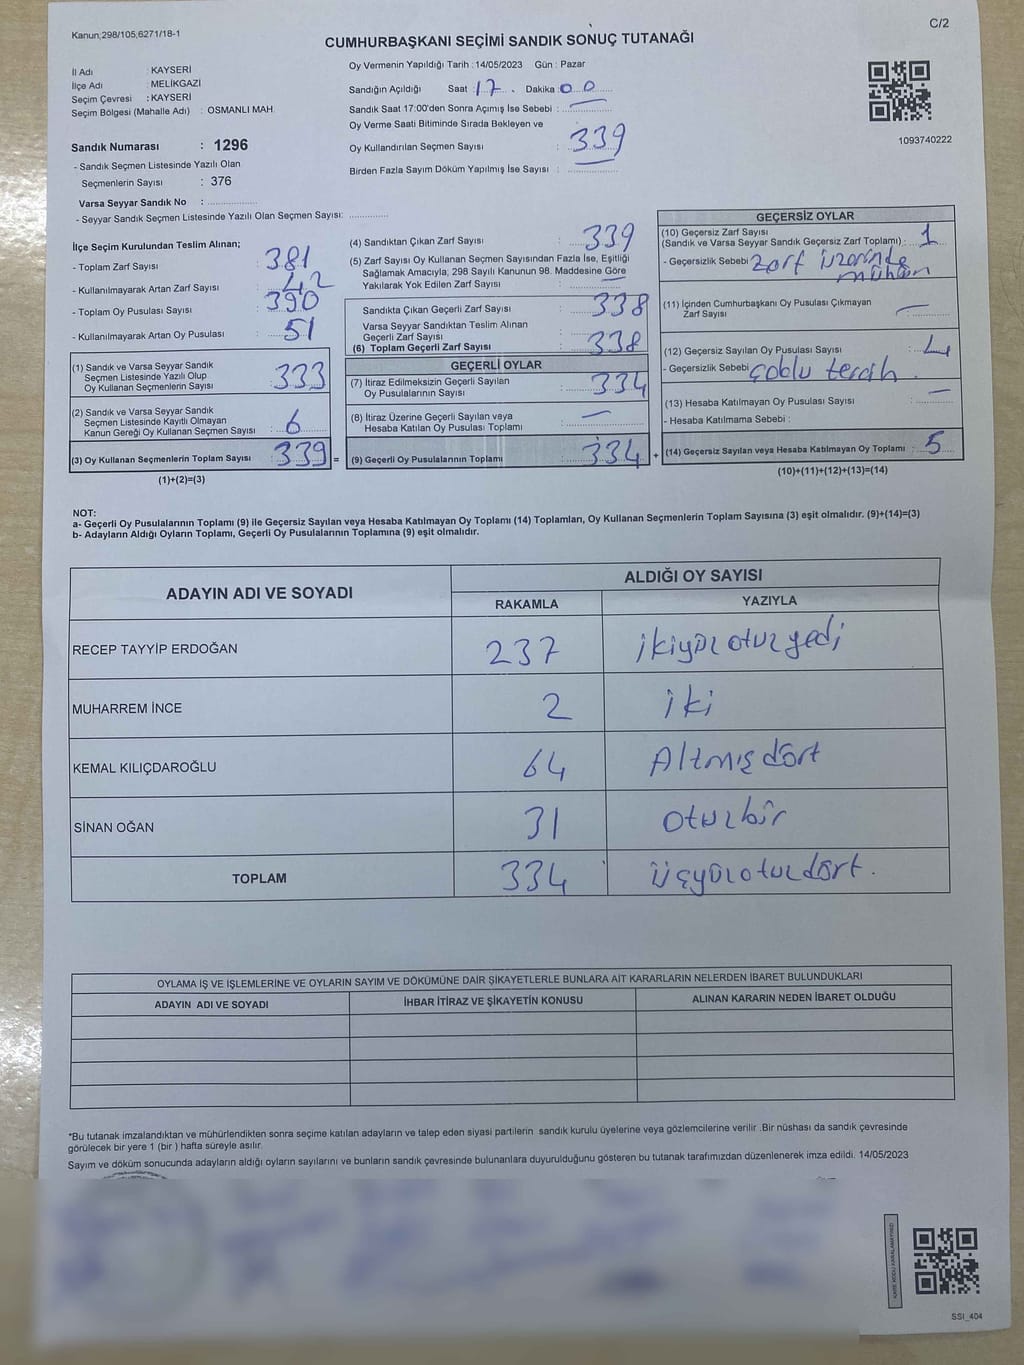 Kanun;298/105;6271/18-1
C/2
CUMHURBAŞKANI SEÇİMİ SANDIK SONUÇ TUTANAĞI
İl Adı : KAYSERİ
İlçe Adı : MELİKGAZİ
Seçim Çevresi : KAYSERİ
Seçim Bölgesi (Mahalle Adı) : OSMANLI MAH.
Sandık Numarası : 1296
- Sandık Seçmen Listesinde Yazılı Olan
Seçmenlerin Sayısı : 376
Varsa Seyyar Sandık No :
- Seyyar Sandık Seçmen Listesinde Yazılı Olan Seçmen Sayısı:
Oy Vermenin Yapıldığı Tarih : 14/05/2023 Gün : Pazar
Sandığın Açıldığı Saat : 17 . Dakika : 00
Sandık Saat 17:00'den Sonra Açımış İse Sebebi :
Oy Verme Saati Bitiminde Sırada Bekleyen ve
Oy Kullandırılan Seçmen Sayısı : 339
Birden Fazla Sayım Döküm Yapılmış İse Sayısı :
1093740222
İlçe Seçim Kurulundan Teslim Alınan;
- Toplam Zarf Sayısı : 381
- Kullanılmayarak Artan Zarf Sayısı : 42
- Toplam Oy Pusulası Sayısı : 390
- Kullanılmayarak Artan Oy Pusulası : 51
(1) Sandık ve Varsa Seyyar Sandık
Seçmen Listesinde Yazılı Olup
Oy Kullanan Seçmenlerin Sayısı : 333
(2) Sandık ve Varsa Seyyar Sandık
Seçmen Listesinde Kayıtlı Olmayan
Kanun Gereği Oy Kullanan Seçmen Sayısı : 6
(3) Oy Kullanan Seçmenlerin Toplam Sayısı : 339 =
(1)+(2)=(3)
(4) Sandıktan Çıkan Zarf Sayısı : 339
(5) Zarf Sayısı Oy Kullanan Seçmen Sayısından Fazla İse, Eşitliği
Sağlamak Amacıyla, 298 Sayılı Kanunun 98. Maddesine Göre
Yakılarak Yok Edilen Zarf Sayısı : —
Sandıkta Çıkan Geçerli Zarf Sayısı : 338
Varsa Seyyar Sandıktan Teslim Alınan
Geçerli Zarf Sayısı
(6) Toplam Geçerli Zarf Sayısı : 338
GEÇERLİ OYLAR
(7) İtiraz Edilmeksizin Geçerli Sayılan
Oy Pusulalarının Sayısı : 334
(8) İtiraz Üzerine Geçerli Sayılan veya
Hesaba Katılan Oy Pusulası Toplamı : —
(9) Geçerli Oy Pusulalarının Toplamı : 334 +
GEÇERSİZ OYLAR
(10) Geçersiz Zarf Sayısı
(Sandık ve Varsa Seyyar Sandık Geçersiz Zarf Toplamı) : 1
- Geçersizlik Sebebi : zarf üzerinde
mühür
(11) İçinden Cumhurbaşkanı Oy Pusulası Çıkmayan
Zarf Sayısı : —
(12) Geçersiz Sayılan Oy Pusulası Sayısı : 4
- Geçersizlik Sebebi çoklu tercih .
(13) Hesaba Katılmayan Oy Pusulası Sayısı : —
- Hesaba Katılmama Sebebi :
(14) Geçersiz Sayılan veya Hesaba Katılmayan Oy Toplamı : 5
(10)+(11)+(12)+(13)=(14)
NOT:
a- Geçerli Oy Pusulalarının Toplamı (9) ile Geçersiz Sayılan veya Hesaba Katılmayan Oy Toplamı (14) Toplamları, Oy Kullanan Seçmenlerin Toplam Sayısına (3) eşit olmalıdır. (9)+(14)=(3)
b- Adayların Aldığı Oyların Toplamı, Geçerli Oy Pusulalarının Toplamına (9) eşit olmalıdır.
ADAYIN ADI VE SOYADI ALDIĞI OY SAYISI
RAKAMLA YAZIYLA
RECEP TAYYİP ERDOĞAN 237 ikiyüzotuzyedi
MUHARREM İNCE 2 iki
KEMAL KILIÇDAROĞLU 64 Altmışdört
SİNAN OĞAN 31 otuzbir
TOPLAM 334 üçyüzotuzdört.
OYLAMA İŞ VE İŞLEMLERİNE VE OYLARIN SAYIM VE DÖKÜMÜNE DAİR ŞİKAYETLERLE BUNLARA AİT KARARLARIN NELERDEN İBARET BULUNDUKLARI
ADAYIN ADI VE SOYADI İHBAR İTİRAZ VE ŞİKAYETİN KONUSU ALINAN KARARIN NEDEN İBARET OLDUĞU
*Bu tutanak imzalandıktan ve mühürlendikten sonra seçime katılan adayların ve talep eden siyasi partilerin sandık kurulu üyelerine veya gözlemcilerine verilir .Bir nüshası da sandık çevresinde
görülecek bir yere 1 (bir ) hafta süreyle asılır.
Sayım ve döküm sonucunda adayların aldığı oyların sayılarını ve bunların sandık çevresinde bulunanlara duyurulduğunu gösteren bu tutanak tarafımızdan düzenlenerek imza edildi. 14/05/2023
KARE KODU KARALAMAYINIZ!
SSI_404